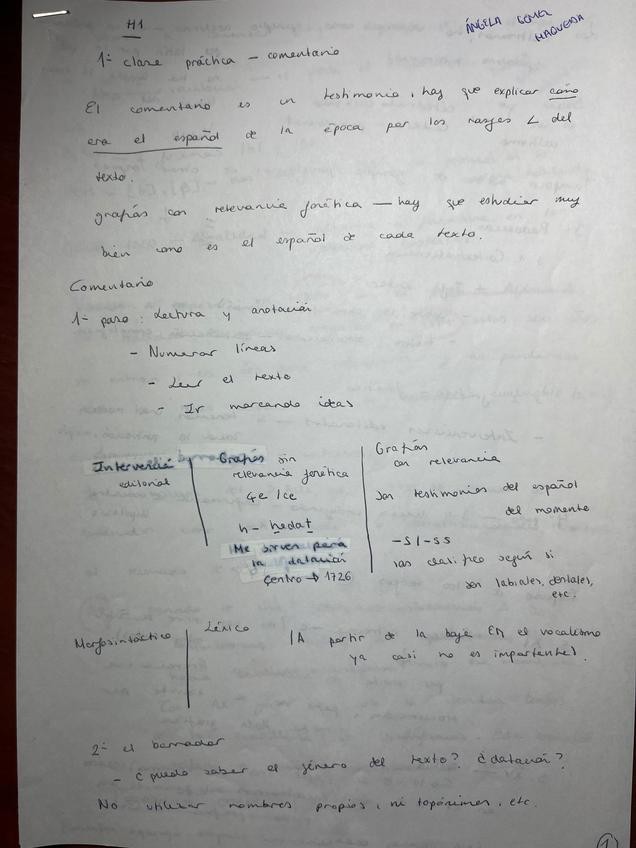 H1
ÁNGELA GÓMEZ
MAQUEDA
1ª clase práctica - comentario
El comentario es un testimonio, hay que explicar como
era el español de la época por los rasgos L del
texto.
grafías con relevancia fonética — hay que estudiar muy
bien como es el español de cada texto.
Comentario
1º paso: Lectura y anotación
- Numerar líneas
- Leer el texto
- Ir marcando ideas
Intervenció
editorial
Grafías sin
relevancia fonética
çe / ce
h - hedat
Me sirven para
la datación
çentro → 1726
Grafías
con relevancia
son testimonios del español
del momento
-s / -ss
las clasifico según si
son labiales, dentales,
etc.
Morfosintáctico
Léxico
(A partir de la baja EM el vocalismo
ya casi no es importante).
2º el borrador
- ¿puedo saber el género del texto? ¿datación?
No utilizar nombres propios, ni topónimos, etc.
1